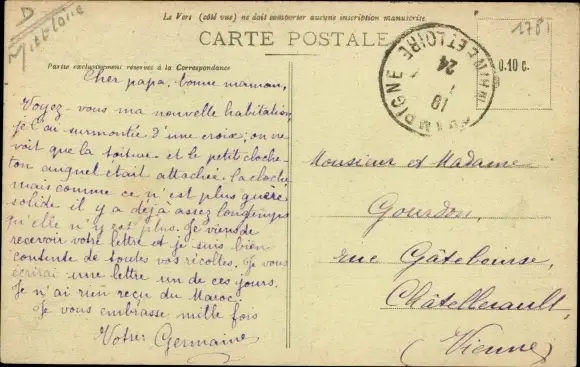 D
1781
Le Vers (côté vue) ne doit comporter aucune inscription manuscrite
CARTE POSTALE
Partie exclusivement réservée à la Correspondance
0.10 c.
CHAMPIGNE MAINE ET LOIRE
18
24
Cher papa, bonne maman,
Voyez-vous ma nouvelle habitation,
je l'ai surmontée d'une croix; on ne
voit que la toiture et le petit cloche-
ton auquel était attachée la cloche
mais comme ce n'est plus guère
solide il y a déjà assez longtemps
qu'elle n'y est plus. Je viens de
recevoir votre lettre et je suis bien
contente de toutes vos récoltes. Je vous
écrirai une lettre un de ces jours.
Je n'ai rien reçu du Maroc.
Je vous embrasse mille fois
Votre Germaine
Monsieur et Madame
Gourdon,
rue Gâtebourse,
Châtellerault
(Vienne)